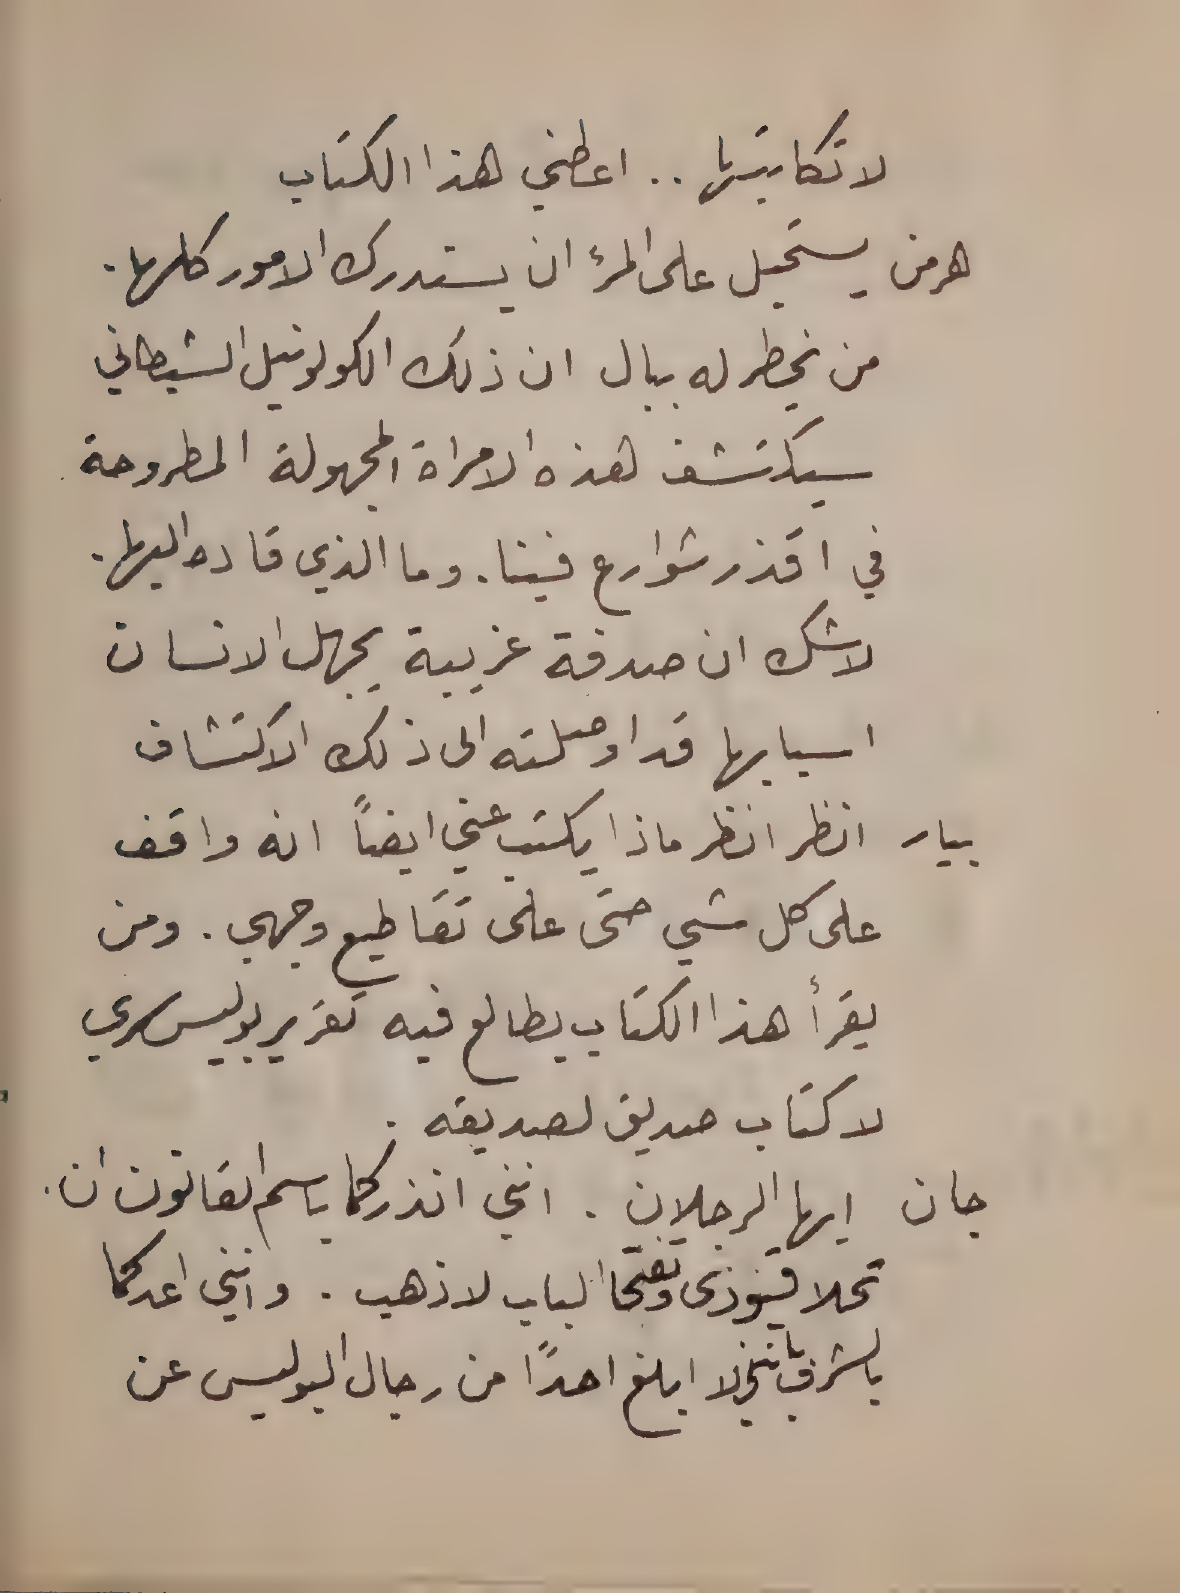 لا تكاتبتها .. اعطني هذا الكتاب
هرمن يستحيل على المرء ان يستدرك الامور كلها .
من يخطر له ببال ان ذلك الكولونيل الشيطاني
سيكتشف هذه الامراة المجهولة المطروحة
في اقذر شوارع فينا . وما الذي قاده اليها .
لاشك ان صدفة غريبة يجهل الانسان
اسبابها قد اوصلته الى ذلك الاكتشاف
بيار انظر انظر ماذا يكتب عني ايضاً انه واقف
على كل شي حتى على تقاطيع وجهي . ومن
يقرأ هذا الكتاب يطالع فيه تقرير بوليس سري
لا كتاب صديق لصديقه .
جان ايها الرجلان . انني انذركما باسم القانون ان .
تحلا قيودي وتفتحا الباب لاذهب . وانني اعدكما
بالشرف بانني لا ابلغ احدًا من رجال البوليس عن